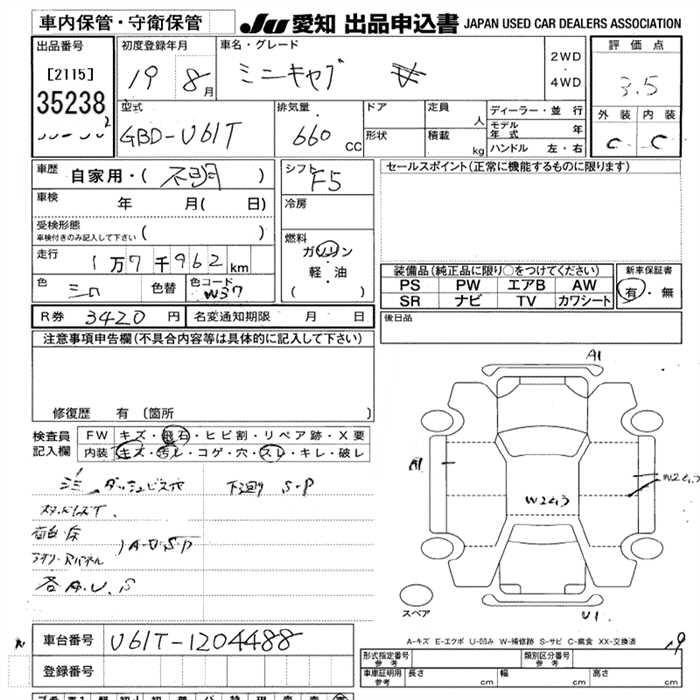 車内保管・守衛保管
JU 愛知 出品申込書 JAPAN USED CAR DEALERS ASSOCIATION
出品番号
[2115]
35238
初度登録年月
19 8月
車名・グレード
ミニキャブ
2WD
・
4WD
評価点
3.5
外装 内装
C C
型式
GBD-U61T
排気量
660 CC
ドア
形状
定員 人
積載 kg
ディーラー・並行
モデル年式 年
ハンドル 左・右
車歴
自家用・( 不明 )
車検 年 月( 日)
受検形態
車検付きのみ記入して下さい ( )
走行
1万7千962km
色
シロ
色替
色コード
W37
シフト
F5
冷房
燃料
ガソリン
軽・油
( )
セールスポイント(正常に機能するものに限ります)
装備品(純正品に限り○をつけてください)
PS PW エアB AW
SR ナビ TV カワシート
新車保証書
有・無
R券 3420 円 名変通知期限 月 日
後日品
注意事項申告欄(不具合内容等は具体的に記入して下さい)
修復歴 有 (箇所 )
検査員
記入欄
FW キズ・飛石・ヒビ割・リペア跡・X要
内装 キズ・汚レ・コゲ・穴・スレ・キレ・破レ
ダッシュビス穴 下廻り S・P
A・U・S・P
各A、U、S
A1
A1
W2
W2
U1
スペア
A-キズ E-エクボ U-凹み W-補修跡 S-サビ C-腐食 XX-交換済
車台番号 U61T-1204488
登録番号
型式指定番号
参考
類別区分番号
参考
車庫証明用
参考
長さ cm
幅 cm
高さ cm